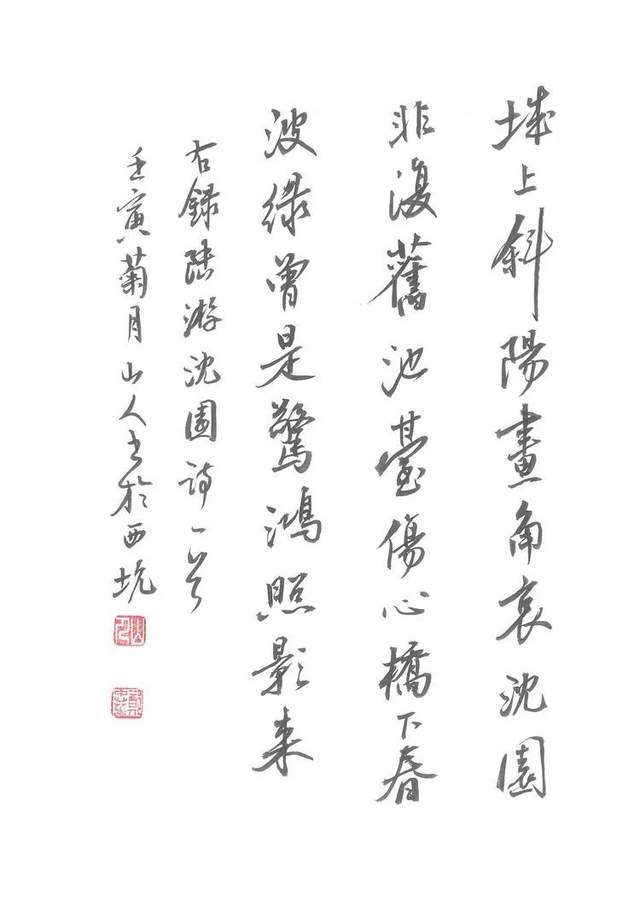 城上斜陽畫角哀沈園
非復舊池臺傷心橋下春
波綠曾是驚鴻照影來
右錄陸游沈園詩一首
壬寅菊月山人書於西坑